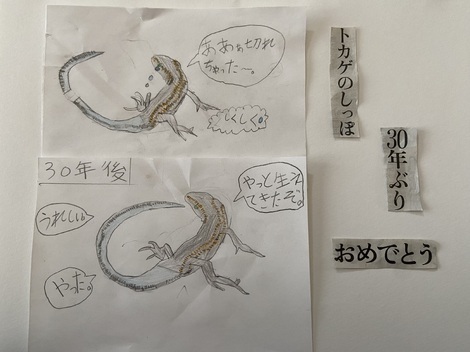 ああぁ切れ
ちゃったー。
しくしく。
30年後
やっと生え
てきたぞ。
うれしい。
やった。
トカゲのしっぽ
30年ぶり
おめでとう